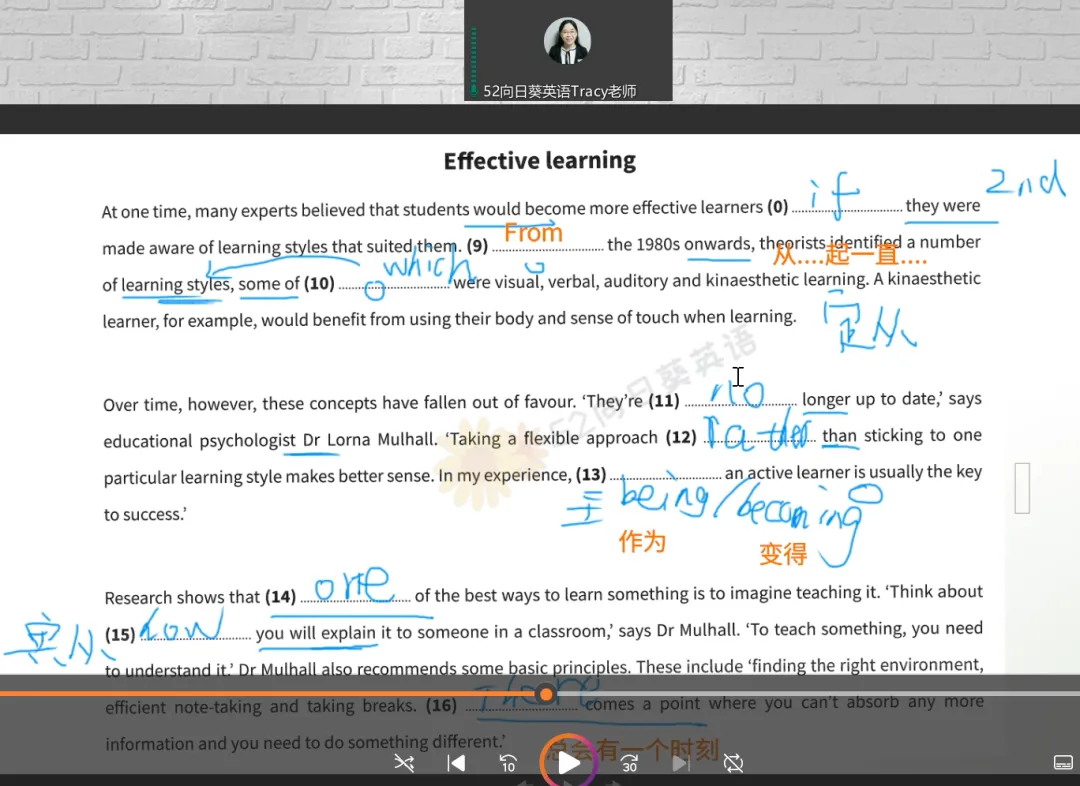 52向日葵英语Tracy老师
Effective learning
if
2nd
At one time, many experts believed that students would become more effective learners (0) .............................. they were
From
made aware of learning styles that suited them. (9) .............................. the 1980s onwards, theorists identified a number
从....起一直....
which
of learning styles, some of (10) .............................. were visual, verbal, auditory and kinaesthetic learning. A kinaesthetic
learner, for example, would benefit from using their body and sense of touch when learning.
定从
52向日葵英语
no
Over time, however, these concepts have fallen out of favour. ‘They’re (11) .............................. longer up to date,’ says
rather
educational psychologist Dr Lorna Mulhall. ‘Taking a flexible approach (12) .............................. than sticking to one
particular learning style makes better sense. In my experience, (13) .............................. an active learner is usually the key
主 being/becoming
to success.’
作为
变得
one
Research shows that (14) .............................. of the best ways to learn something is to imagine teaching it. ‘Think about
宾从
how
(15) .............................. you will explain it to someone in a classroom,’ says Dr Mulhall. ‘To teach something, you need
to understand it.’ Dr Mulhall also recommends some basic principles. These include ‘finding the right environment,
There
efficient note-taking and taking breaks. (16) .............................. comes a point where you can’t absorb any more
information and you need to do something different.’
总会有一个时刻
10
30